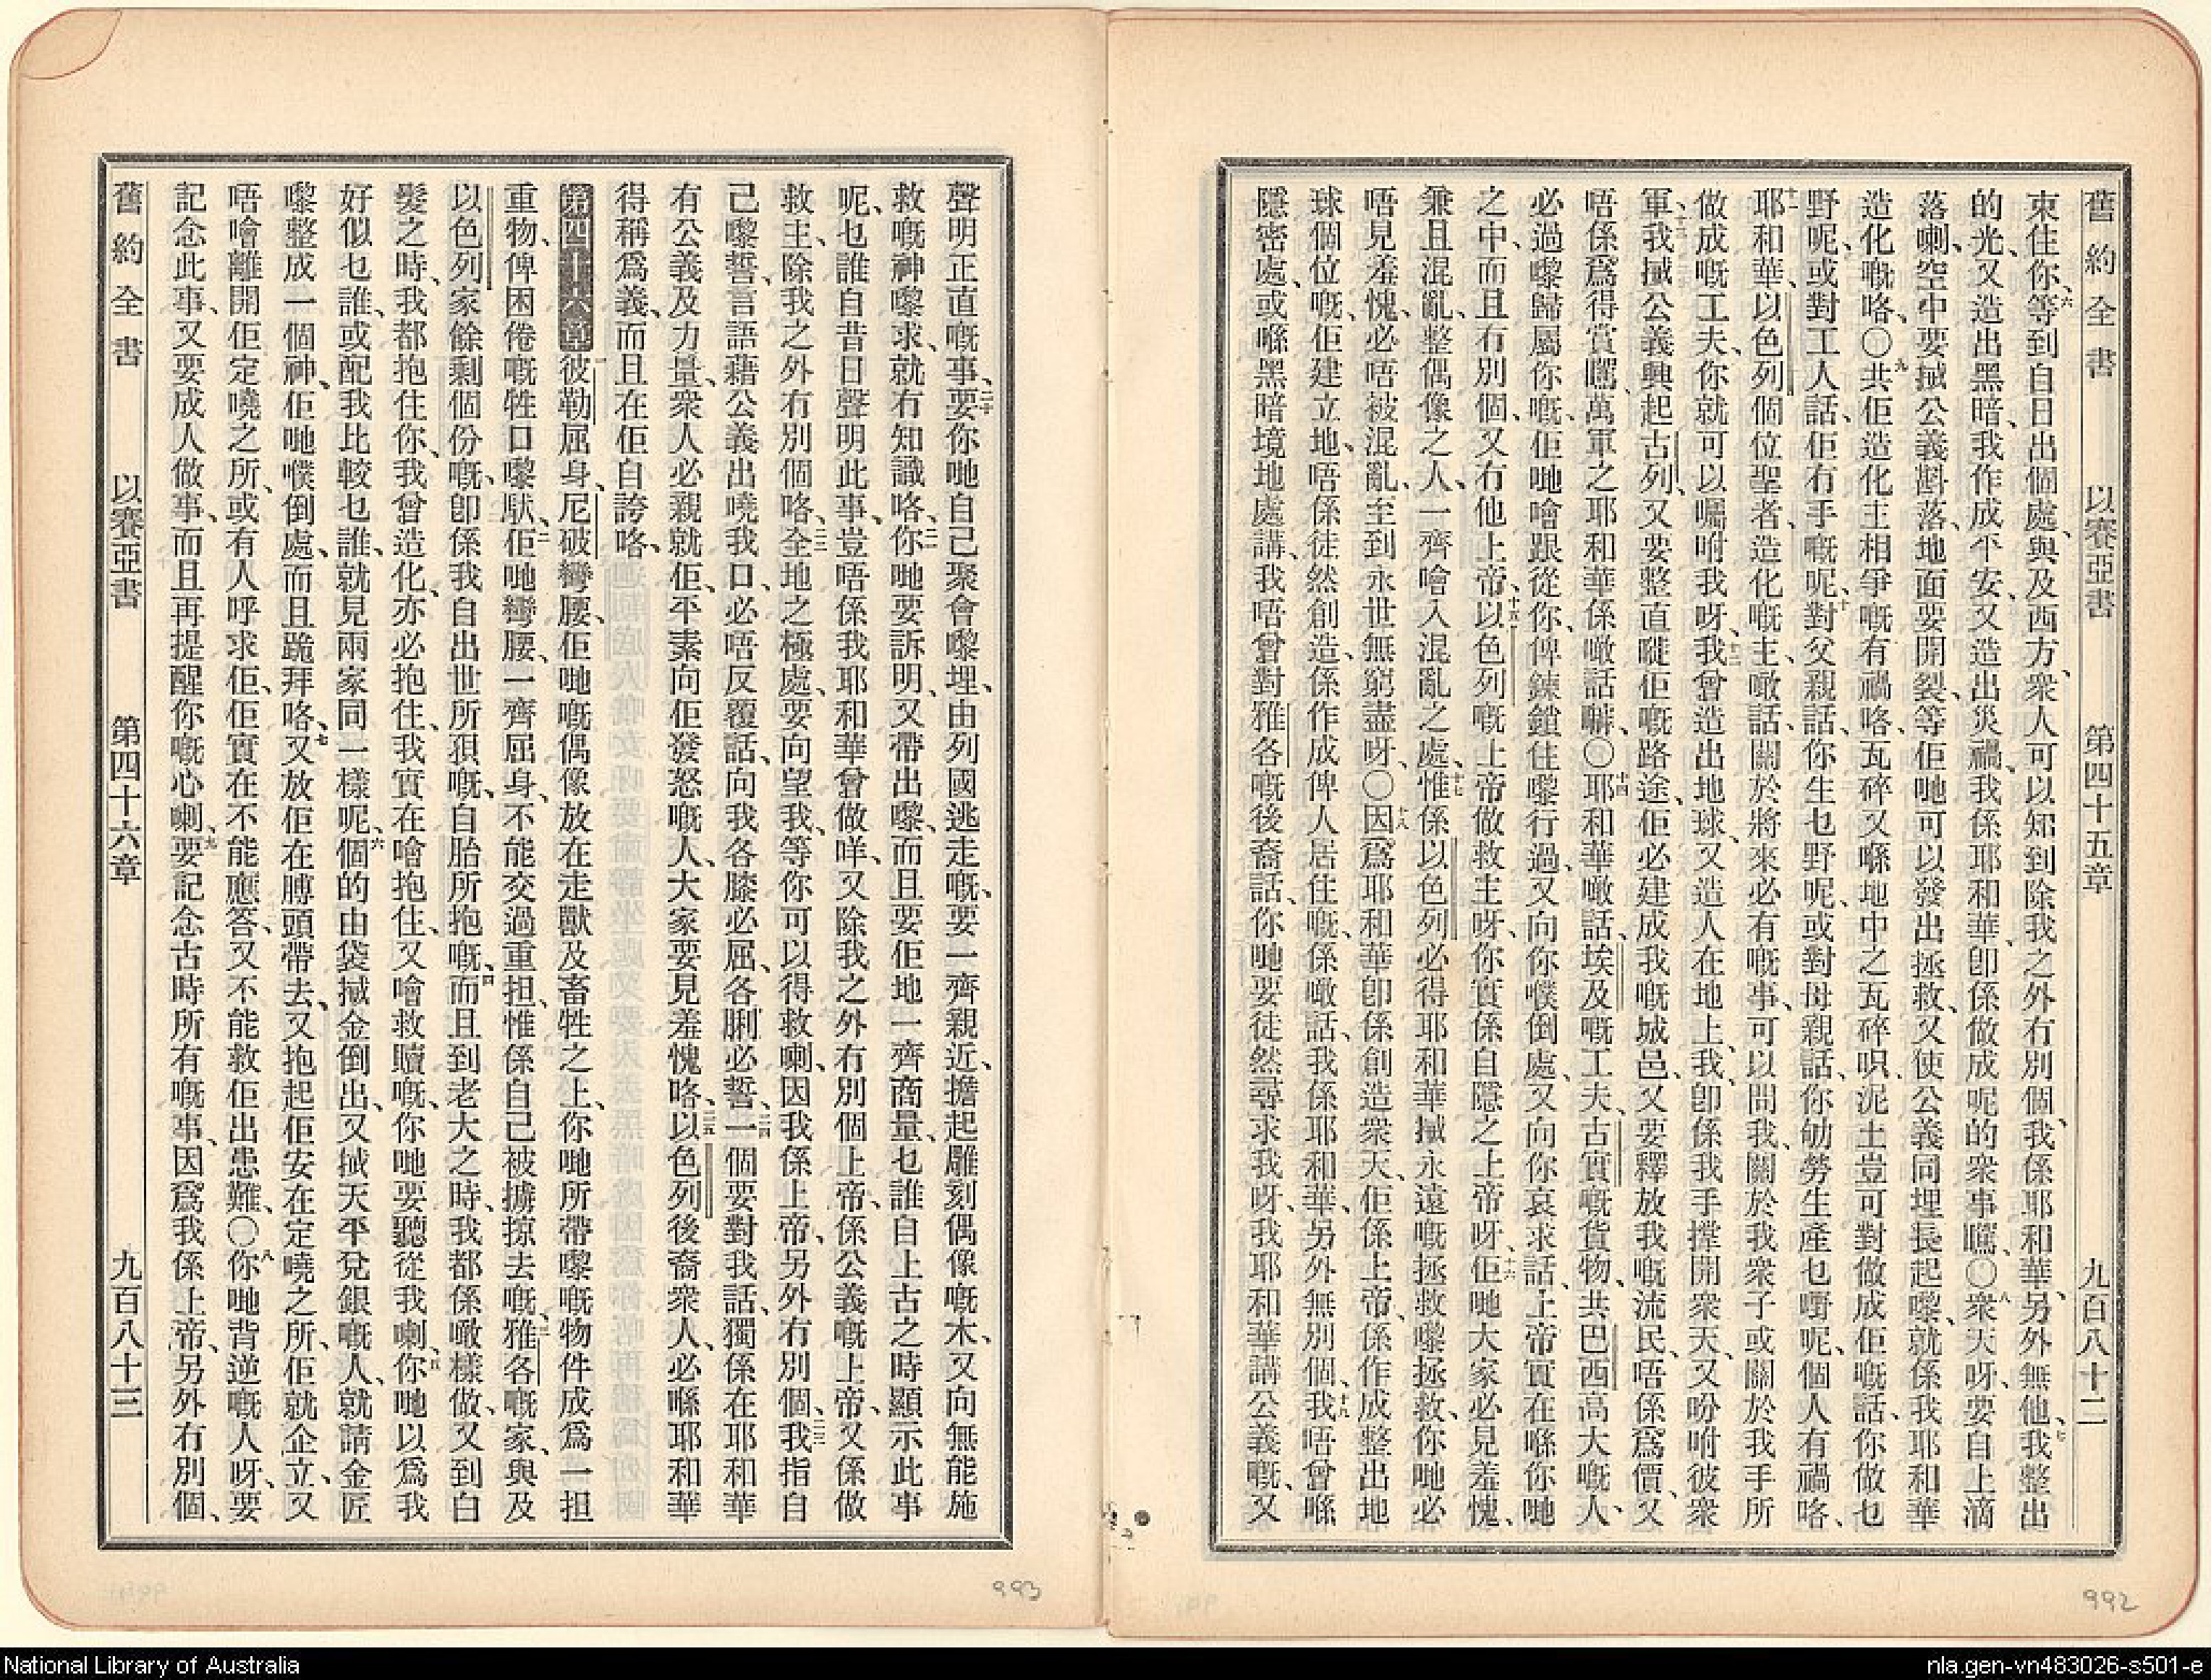 舊約全書 以賽亞書 第四十五章 九百八十二
東住你、六等到自日出個處、與及西方、衆人可以知到除我之外冇別個、我係耶和華、另外無他、七我整出
的光、又造出黑暗、我作成平安、又造出災禍、我係耶和華、卽係做成呢的衆事嘅、○八衆天呀、要自上滴
落喇、空中要搣公義斟落、地面要開裂、等佢哋可以發出拯救、又使公義同埋長起嚟、就係我耶和華
造化嘅咯、○九共佢造化主相爭嘅有禍咯、瓦碎又喺地中之瓦碎呮、泥土豈可對做成佢嘅話、你做乜
野呢、或對工人話、佢冇手嘅呢、十對父親話、你生乜野呢、或對母親話、你劬勞生產乜嘢呢、個人有禍咯、
十一耶和華、以色列個位聖者、造化嘅主、噉話、關於將來必有嘅事、可以問我、關於我衆子或關於我手所
做成嘅工夫、你就可以囑咐我呀、十二我曾造出地球、又造人在地上、我卽係我手撑開衆天、又吩咐彼衆
軍、十三我搣公義興起古列、又要整直嗮佢嘅路途、佢必建成我嘅城邑、又要釋放我嘅流民、唔係爲價、又
唔係爲得賞嘅、萬軍之耶和華係噉話嘛、○十四耶和華噉話、埃及嘅工夫、古實嘅貨物、共巴西高大嘅人、
必過嚟歸屬你嘅、佢哋噲跟從你、俾鍊鎖住嚟行過、又向你噗倒處、又向你哀求話、上帝實在喺你哋
之中、而且冇別個、又冇他上帝、十五以色列嘅上帝做救主呀、你實係自隱之上帝呀、十六佢哋大家必見羞愧、
兼且混亂、整偶像之人、一齊噲入混亂之處、十七惟係以色列必得耶和華搣永遠嘅拯救嚟拯救、你哋必
唔見羞愧、必唔被混亂、至到永世無窮盡呀、○十八因爲耶和華卽係創造衆天、佢係上帝、係作成整出地
球個位嘅、佢建立地、唔係徒然創造、係作成俾人居住嘅、係噉話、我係耶和華、另外無別個、十九我唔曾喺
隱密處、或喺黑暗境地處講、我唔曾對雅各嘅後裔話、你哋要徒然尋求我呀、我耶和華講公義嘅、又
992
聲明正直嘅事、二十要你哋自己聚會嚟埋、由列國逃走嘅、要一齊親近、擔起雕刻偶像嘅木、又向無能施
救嘅神嚟求、就冇知識咯、二一你哋要訴明、又帶出嚟、而且要佢地一齊商量、乜誰自上古之時顯示此事
呢、乜誰自昔日聲明此事、豈唔係我耶和華曾做咩、又除我之外冇別個上帝、係公義嘅上帝、又係做
救主、除我之外冇別個咯、二二全地之極處、要向望我、等你可以得救喇、因我係上帝、另外冇別個、二三我指自
己嚟誓、言語藉公義出嘵我口、必唔反覆話、向我各膝必屈、各脷必誓、二四一個要對我話、獨係在耶和華
有公義及力量、衆人必親就佢、平素向佢發怒嘅人、大家要見羞愧咯、二五以色列後裔衆人、必喺耶和華
得稱爲義、而且在佢自誇咯、
第四十六章 一彼勒屈身、尼破彎腰、佢哋嘅偶像放在走獸及畜牲之上、你哋所帶嚟嘅物件成爲一担
重物、俾困倦嘅牲口嚟馱、二佢哋彎腰、一齊屈身、不能交過重担、惟係自己被擄掠去嘅、三雅各嘅家、與及
以色列家餘剩個份嘅、卽係我自出世所孭嘅、自胎所抱嘅、四而且到老大之時、我都係噉樣做、又到白
髮之時、我都抱住你、我曾造化、亦必抱住、我實在噲抱住、又噲救贖嘅、你哋要聽從我喇、五你哋以爲我
好似乜誰、或配我比較乜誰、就見兩家同一樣呢、六個的由袋搣金倒出、又搣天平兌銀嘅人、就請金匠
嚟整成一個神、佢哋噗倒處、而且跪拜咯、七又放佢在膊頭帶去、又抱起佢安在定嘵之所、佢就企立、又
唔噲離開佢定嘵之所、或有人呼求佢、佢實在不能應答、又不能救佢出患難、○八你哋背逆嘅人呀、要
記念此事、又要成人做事、而且再提醒你嘅心喇、九要記念古時所有嘅事、因爲我係上帝、另外冇別個、
舊約全書 以賽亞書 第四十六章 九百八十三
993
National Library of Australia
nla.gen-vn483026-s501-e